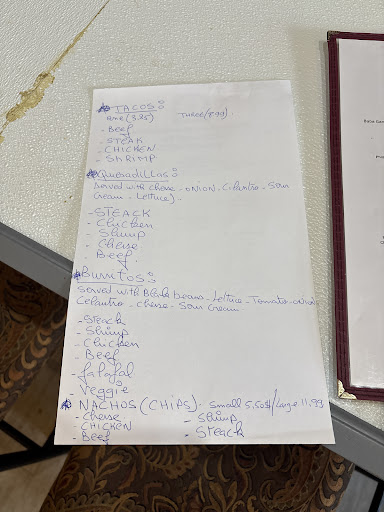 TACOS:
one (3.25) THREE (8.99).
- Beef
- STEAK
- CHICKEN
- SHRIMP
Quesadillas:
Served with cheese - onion - Cilantro - Sour
Cream - Lettuce).
- STEACK
- Chicken
- Shrimp
- Cheese
- Beef.
Burritos:
Served with Black beans - Lettuce - Tomato - onion
Celantro - cheese - Sour Cream
- Steack
- Shrimp
- Chicken
- Beef
- falafal
- Veggie
NACHOS (CHIPS). Small 5,50$/Large 11,99
- Cheese
- CHICKEN
- Beef
- Shrimp
- Steack
Baba Gan